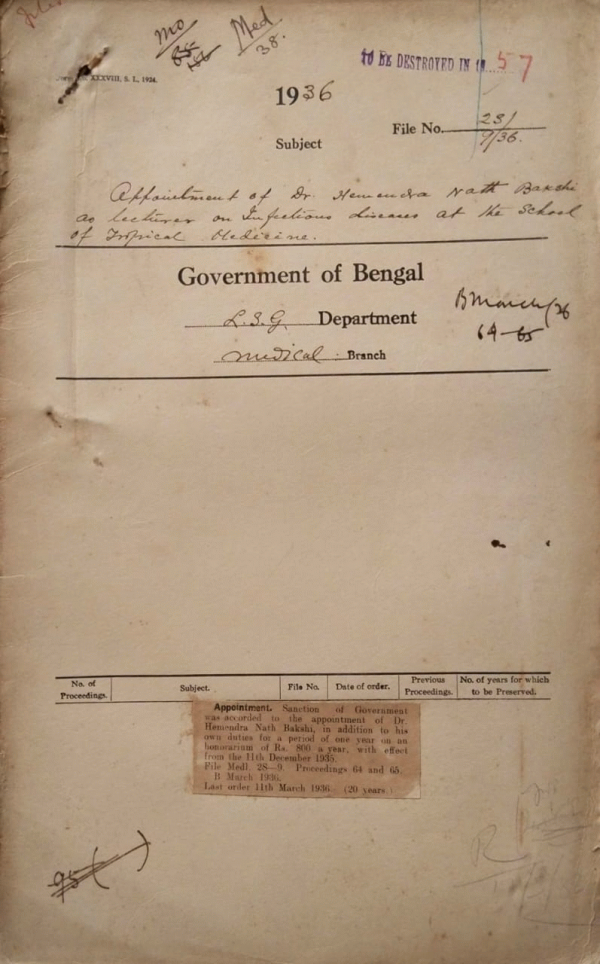 Mo
Med
38.
TO BE DESTROYED IN 19...57
XXXVIII. S. L., 1926.
1936
File No. 2S/9/36.
Subject
Appointment of Dr. Hemendra Nath Bakshi
as lecturer on Infectious diseases at the School
of Tropical Medicine.
Government of Bengal
L.S.G. Department
B March/36
64-65
Medical Branch
No. of Proceedings. Subject. File No. Date of order. Previous Proceedings. No. of years for which to be Preserved.
Appointment. Sanction of Government
was accorded to the appointment of Dr.
Hemendra Nath Bakshi, in addition to his
own duties for a period of one year on an
honorarium of Rs. 800 a year, with effect
from the 11th December 1935.
File Medl. 2S—9. Proceedings 64 and 65.
B March 1936.
Last order 11th March 1936. (20 years.)